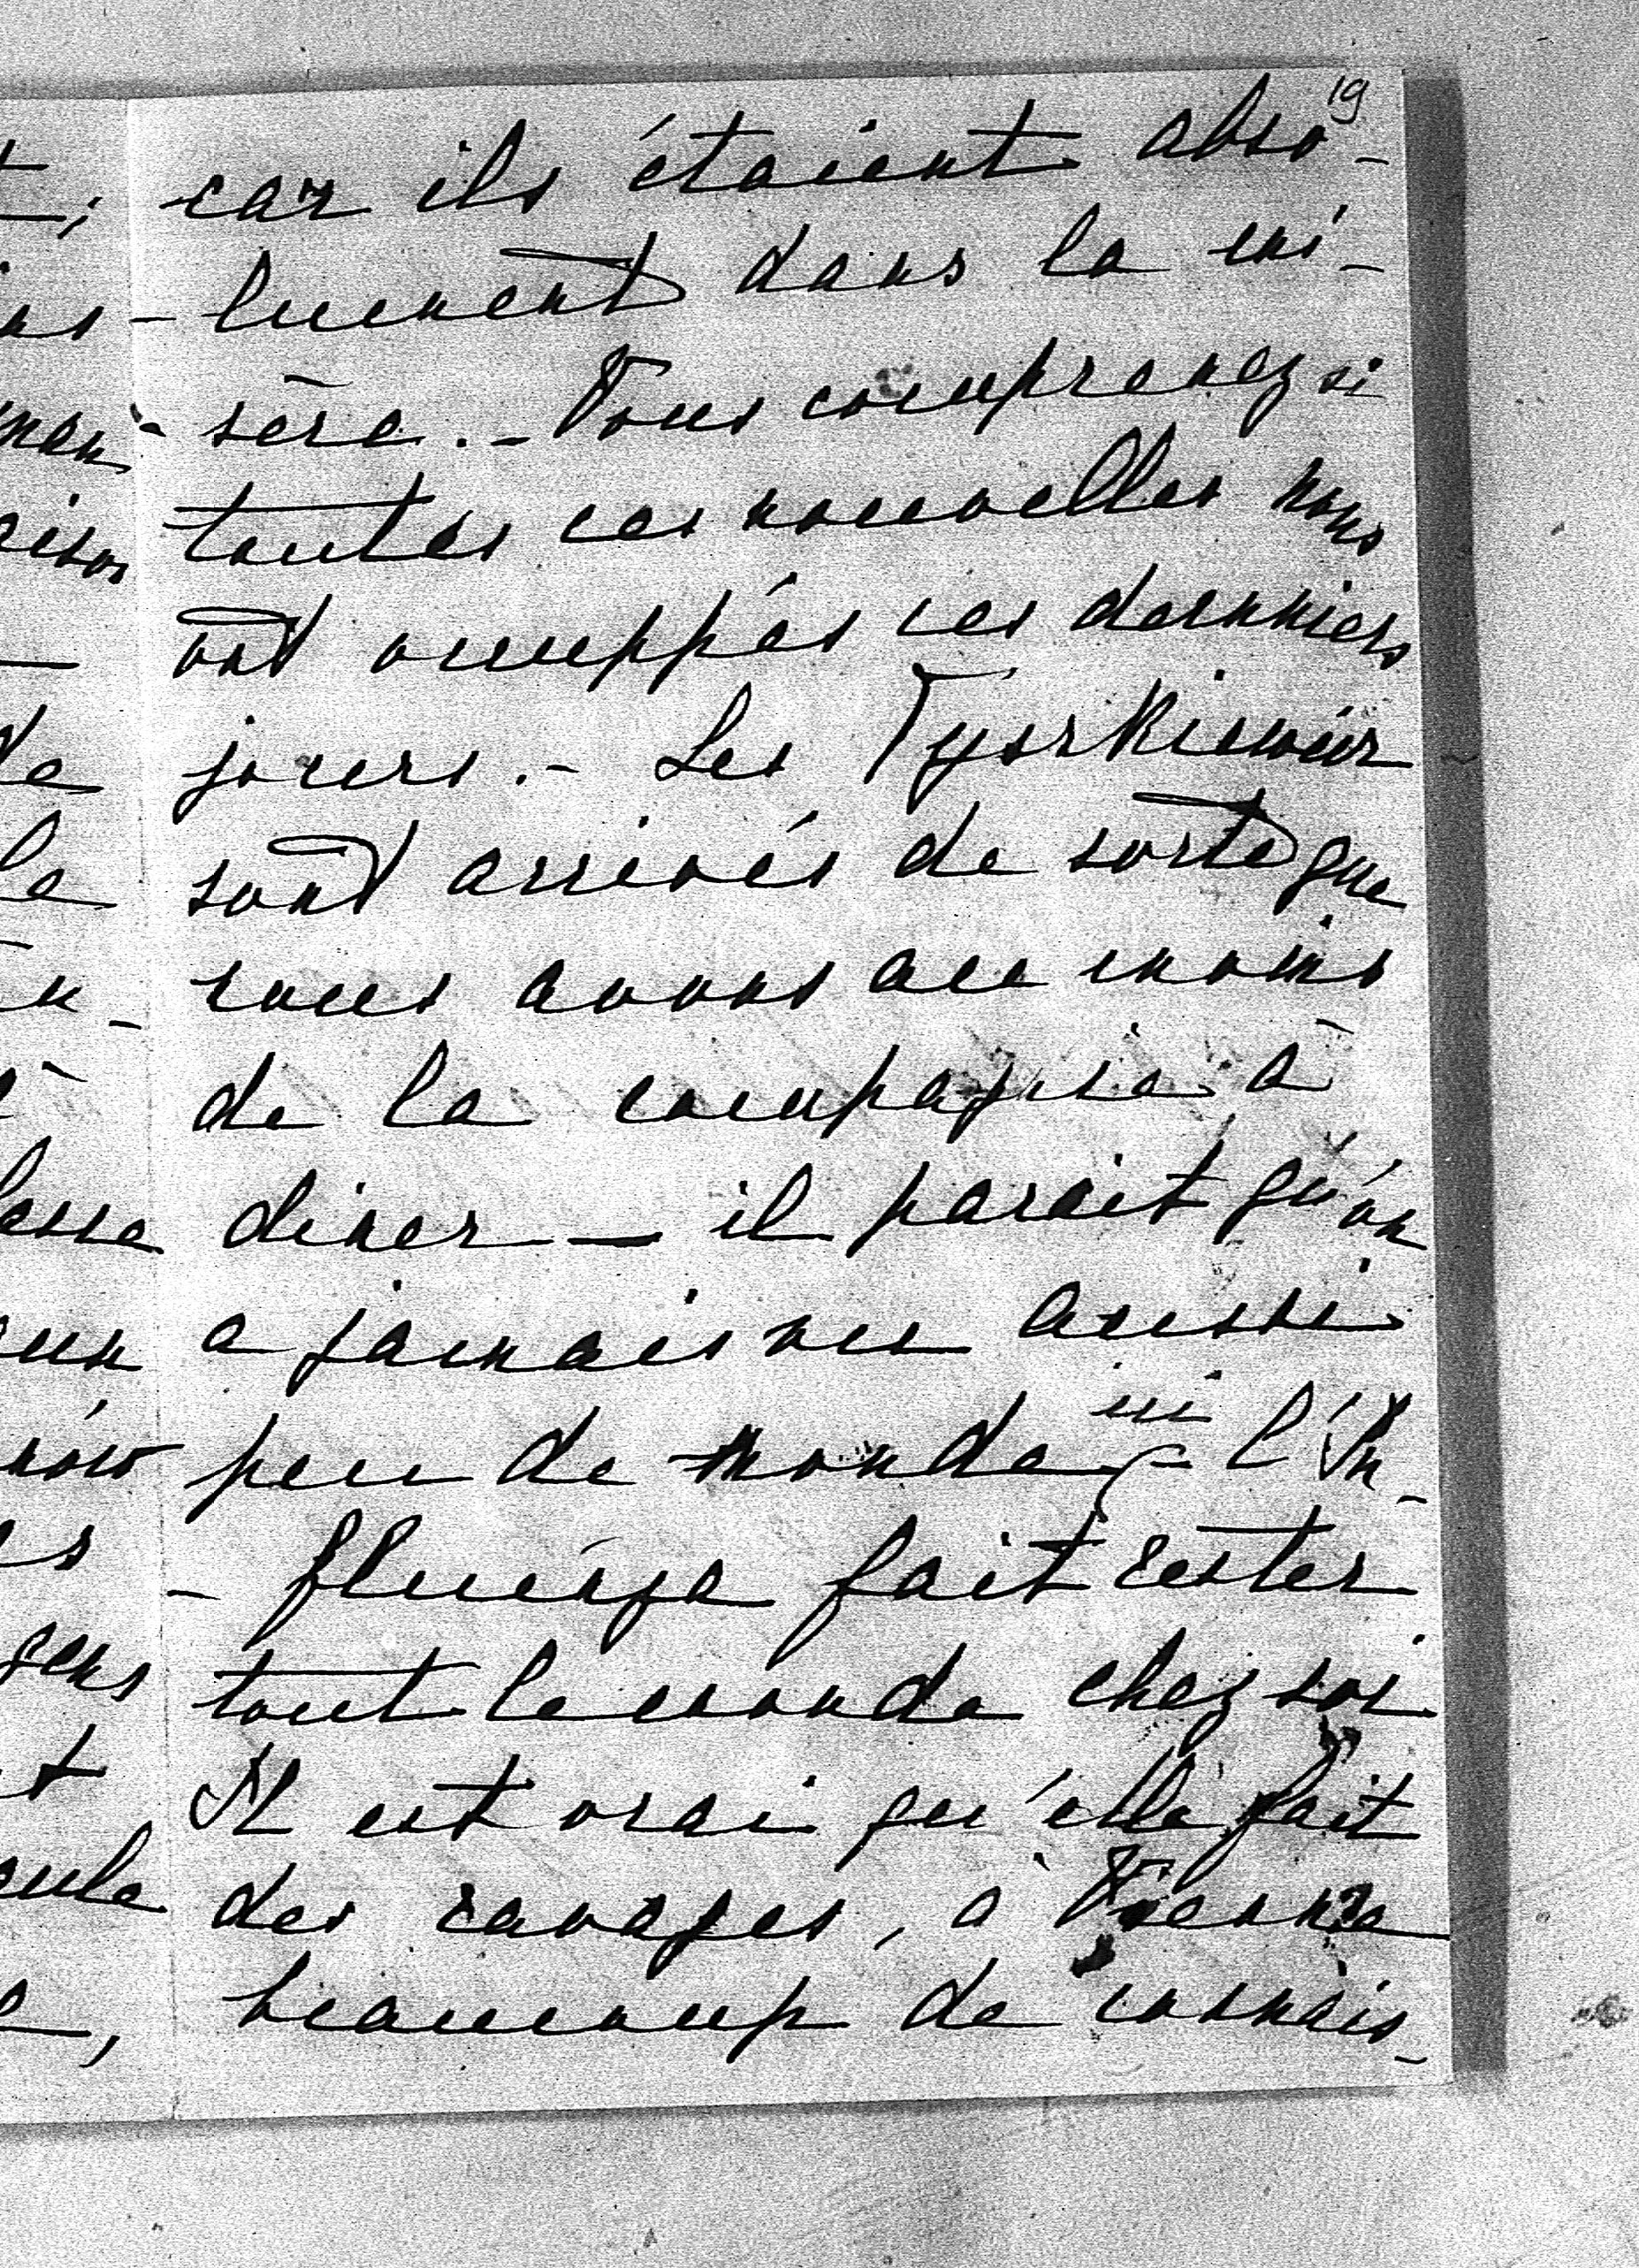 19
car ils étaient abso-
-lument dans la mi-
-sère. - Vous comprenez si
toutes ces nouvelles nous
ont occuppés ces dernniers
jours. - Les Tyszkiewicz
sont arrivés de sorte que
nous avons au moins
de la compagnie à
diner — il parait qu'on
a jamais vu aussi
peu de monde ici l'In-
-fluenza fait rester
tout le monde chez soi.
Il est vrai qu'elle fait
des ravages, à Vienne
beaucoup de connais-